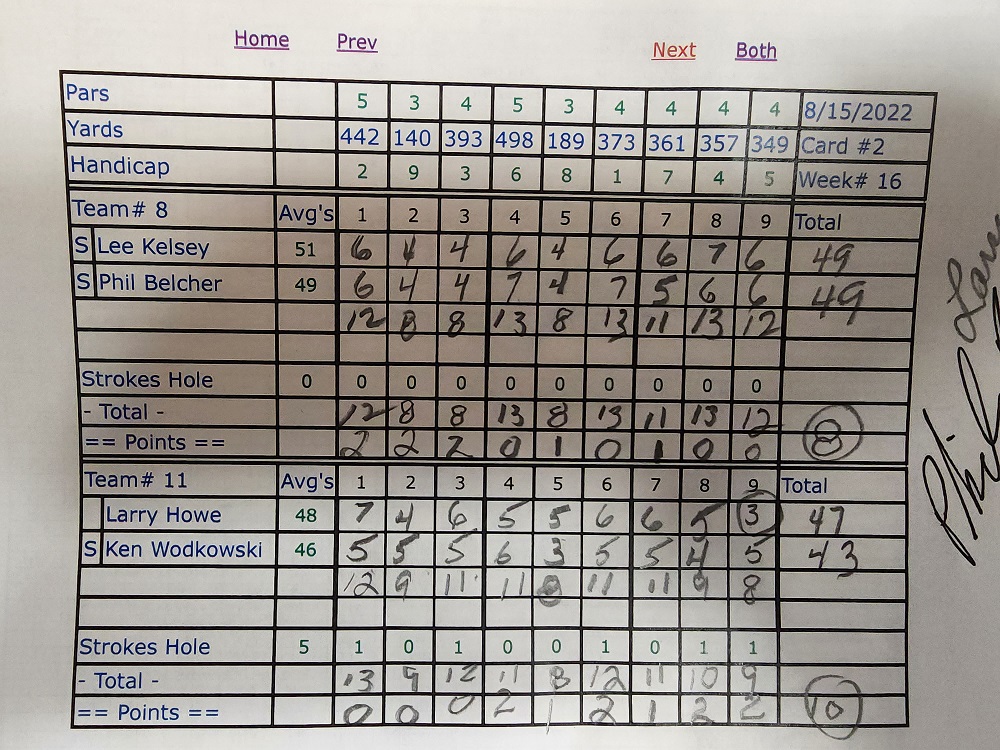 Home Prev Next Both
Pars 5 3 4 5 3 4 4 4 4 8/15/2022
Yards 442 140 393 498 189 373 361 357 349 Card #2
Handicap 2 9 3 6 8 1 7 4 5 Week# 16
Team# 8 Avg's 1 2 3 4 5 6 7 8 9 Total
S Lee Kelsey 51 6 4 4 6 4 6 6 7 6 49
S Phil Belcher 49 6 4 4 7 4 7 5 6 6 49
12 8 8 13 8 13 11 13 12
Strokes Hole 0 0 0 0 0 0 0 0 0 0
- Total - 12 8 8 13 8 13 11 13 12
== Points == 2 2 2 0 1 0 1 0 0 8
Team# 11 Avg's 1 2 3 4 5 6 7 8 9 Total
Larry Howe 48 7 4 6 5 5 6 6 5 3 47
S Ken Wodkowski 46 5 5 5 6 3 5 5 4 5 43
12 9 11 11 8 11 11 9 8
Strokes Hole 5 1 0 1 0 0 1 0 1 1
- Total - 13 9 12 11 8 12 11 10 9
== Points == 0 0 0 2 1 2 1 2 2 10
Phil